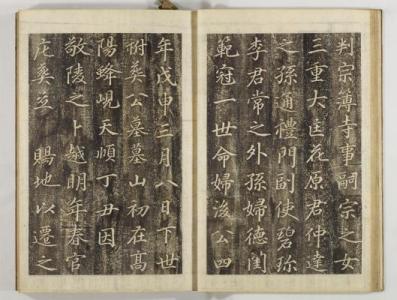 判宗簿寺事嗣宗之女
三重大匡花原君仲達
之孫通禮門副使碧珎
李君常之外孫婦德閨
範冠一世命婦後公四
年戊申三月八日下世
祔葬公墓墓山初在髙
陽蜂峴天順丁丑因
敬陵之卜越明年春官
庀葬 賜地以遷之